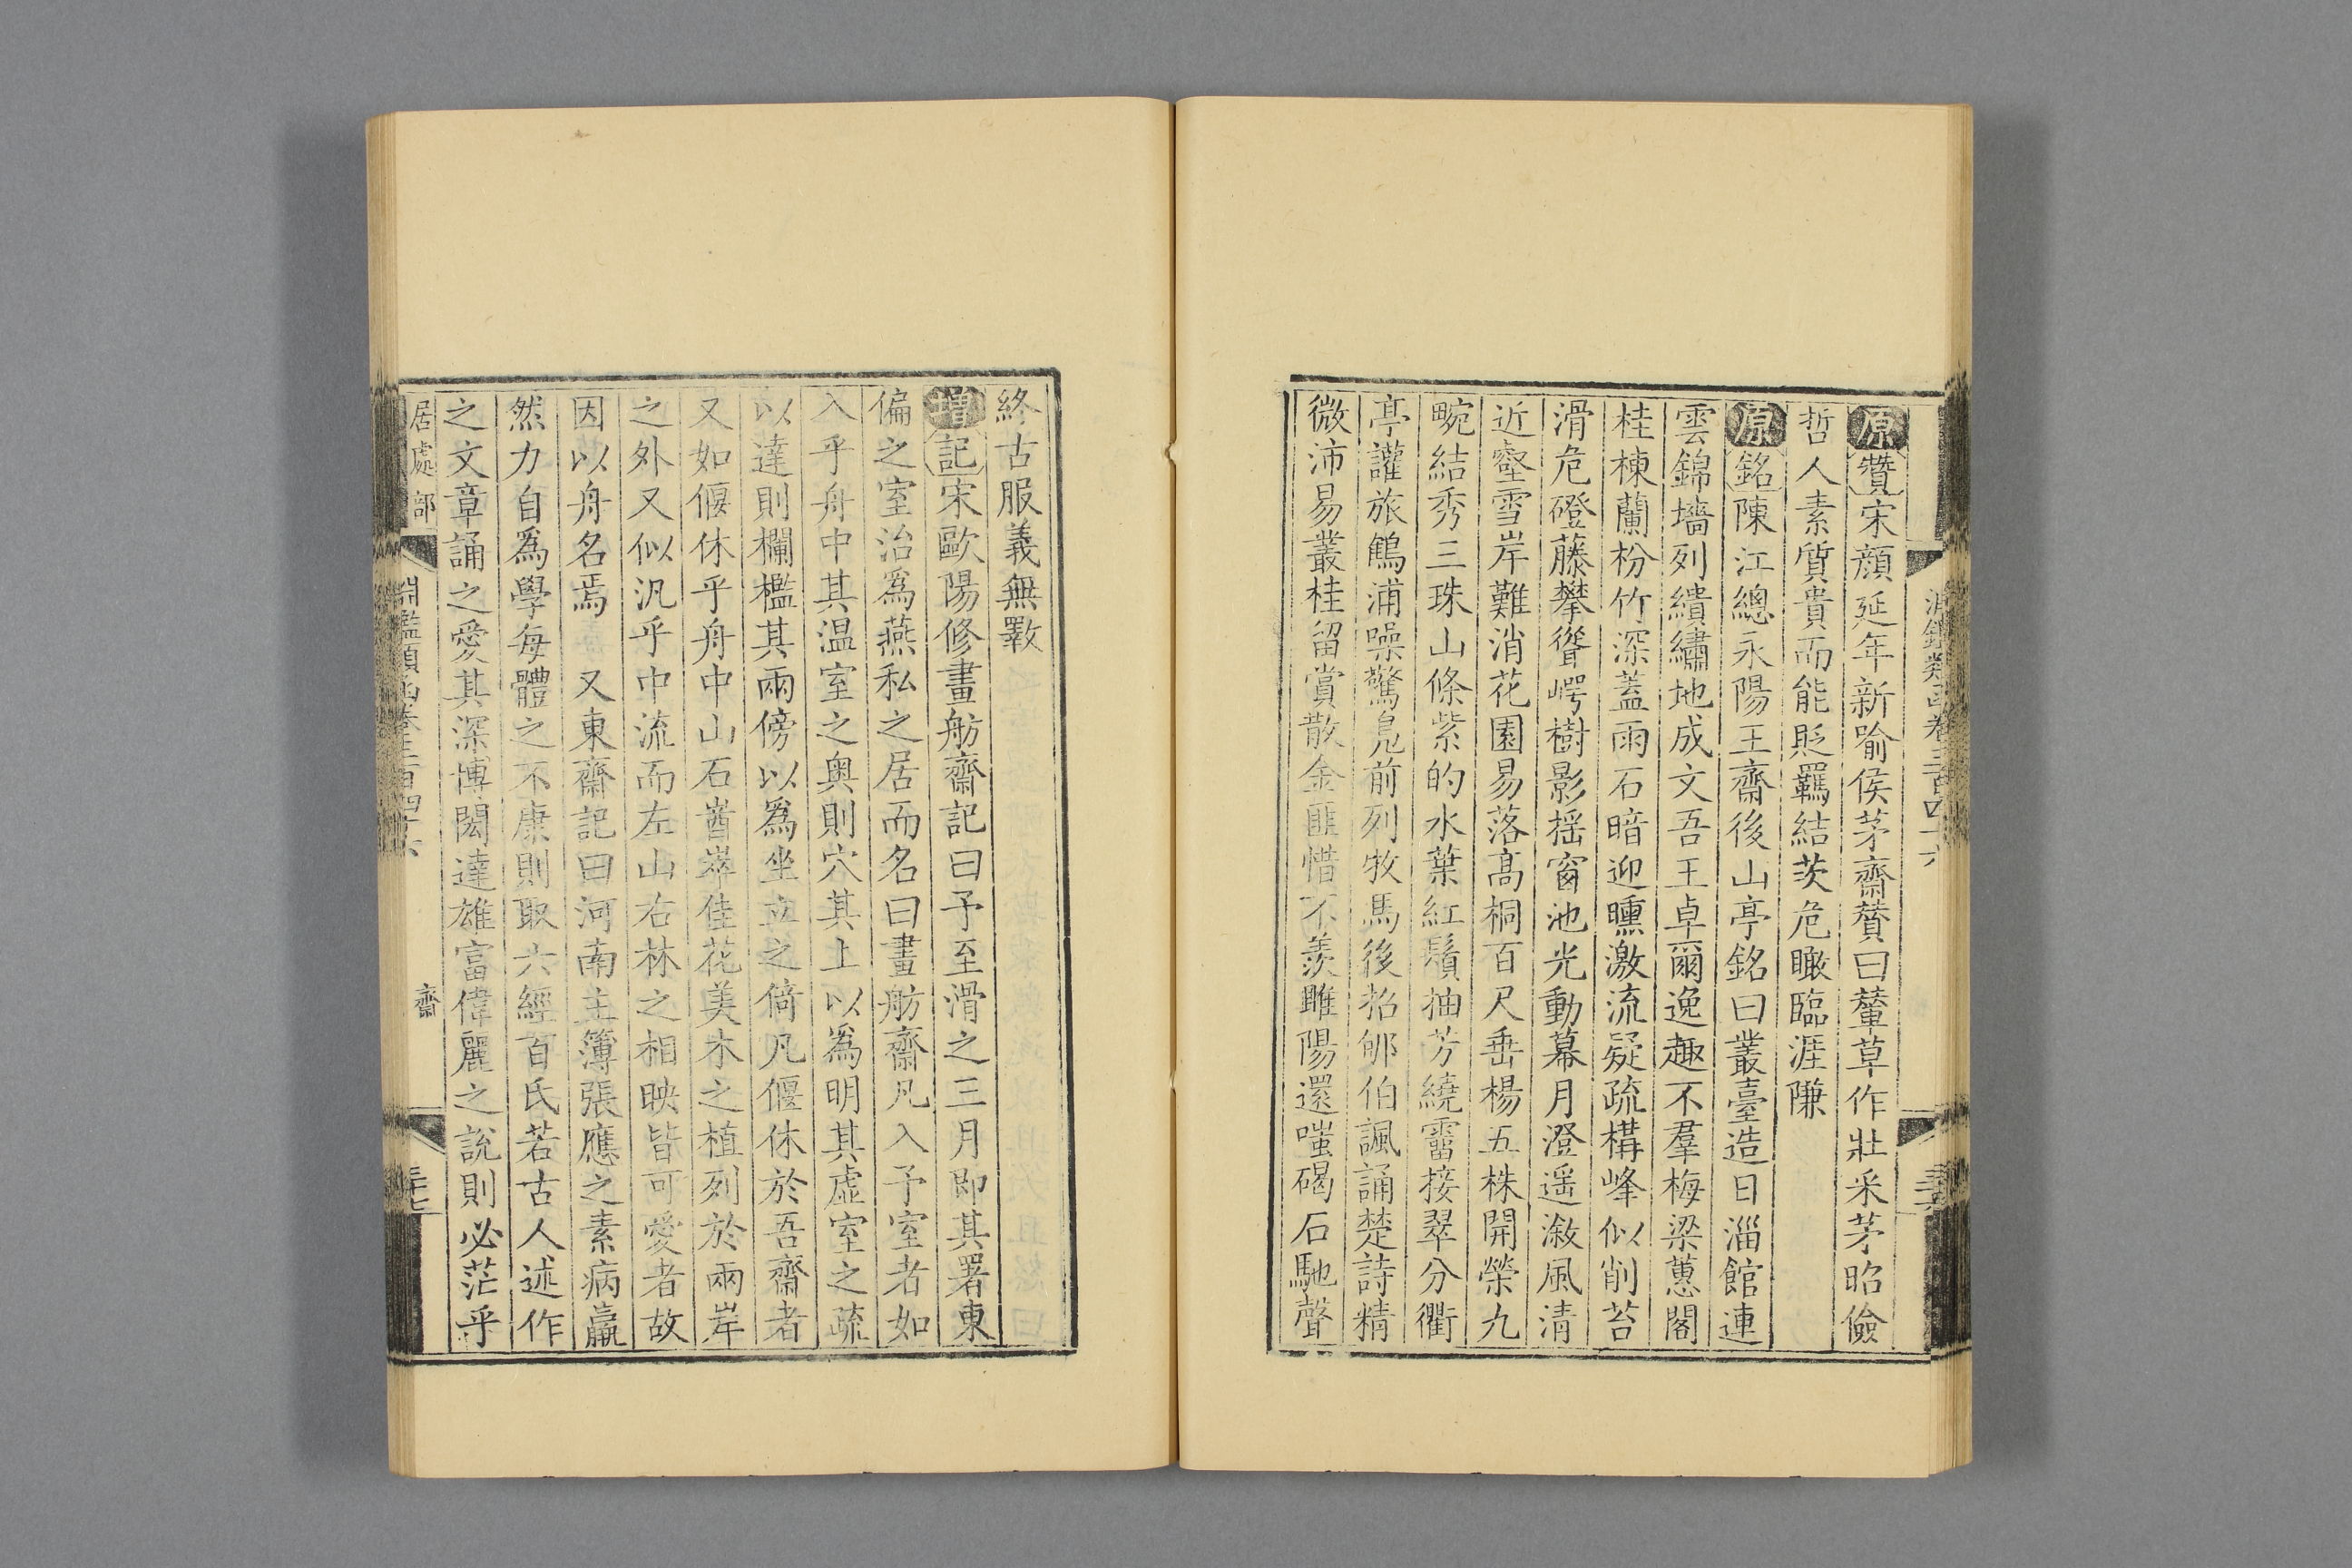 淵鑑類函卷三百四十六
原贊宋顔延年新喻侯茅齋贊曰蓽草作壯采茅昭儉
哲人素質貴而能貶羈結茨危瞰臨涯隒
原銘陳江總永陽王齋後山亭銘曰叢臺造日淄館連
雲錦墻列繢繡地成文吾王卓爾逸趣不羣梅梁蕙閣
桂棟蘭枌竹深蓋雨石暗迎曛激流疑疏構峰似削苔
滑危磴藤攀聳崿樹影揺窗池光動幕月澄遥溆風清
近壑雪岸難消花園易落髙桐百尺垂楊五株開榮九
畹結秀三珠山條紫的水葉紅鬚抽芳繞霤接翠分衢
亭讙旅鶴浦噪驚鳧前列牧馬後招郇伯諷誦楚詩精
微沛易叢桂留賞散金匪惜不羨雎陽還嗤碣石馳聲
終古服義無斁
增記宋歐陽修畫舫齋記曰予至滑之三月即其署東
偏之室治爲燕私之居而名曰畫舫齋凡入予室者如
入乎舟中其温室之奥則穴其上以爲明其虛室之疏
以達則欄檻其兩傍以爲坐立之倚凡偃休於吾齋者
又如偃休乎舟中山石崷崒佳花美木之植列於兩岸
之外又似汎乎中流而左山右林之相映皆可愛者故
因以舟名焉　又東齋記曰河南主簿張應之素病羸
然力自爲學每體之不康則取六經百氏若古人述作
之文章誦之愛其深博閎達雄富偉麗之說則必茫乎
居處部　淵鑑類函卷三百四十六　齋　三十七